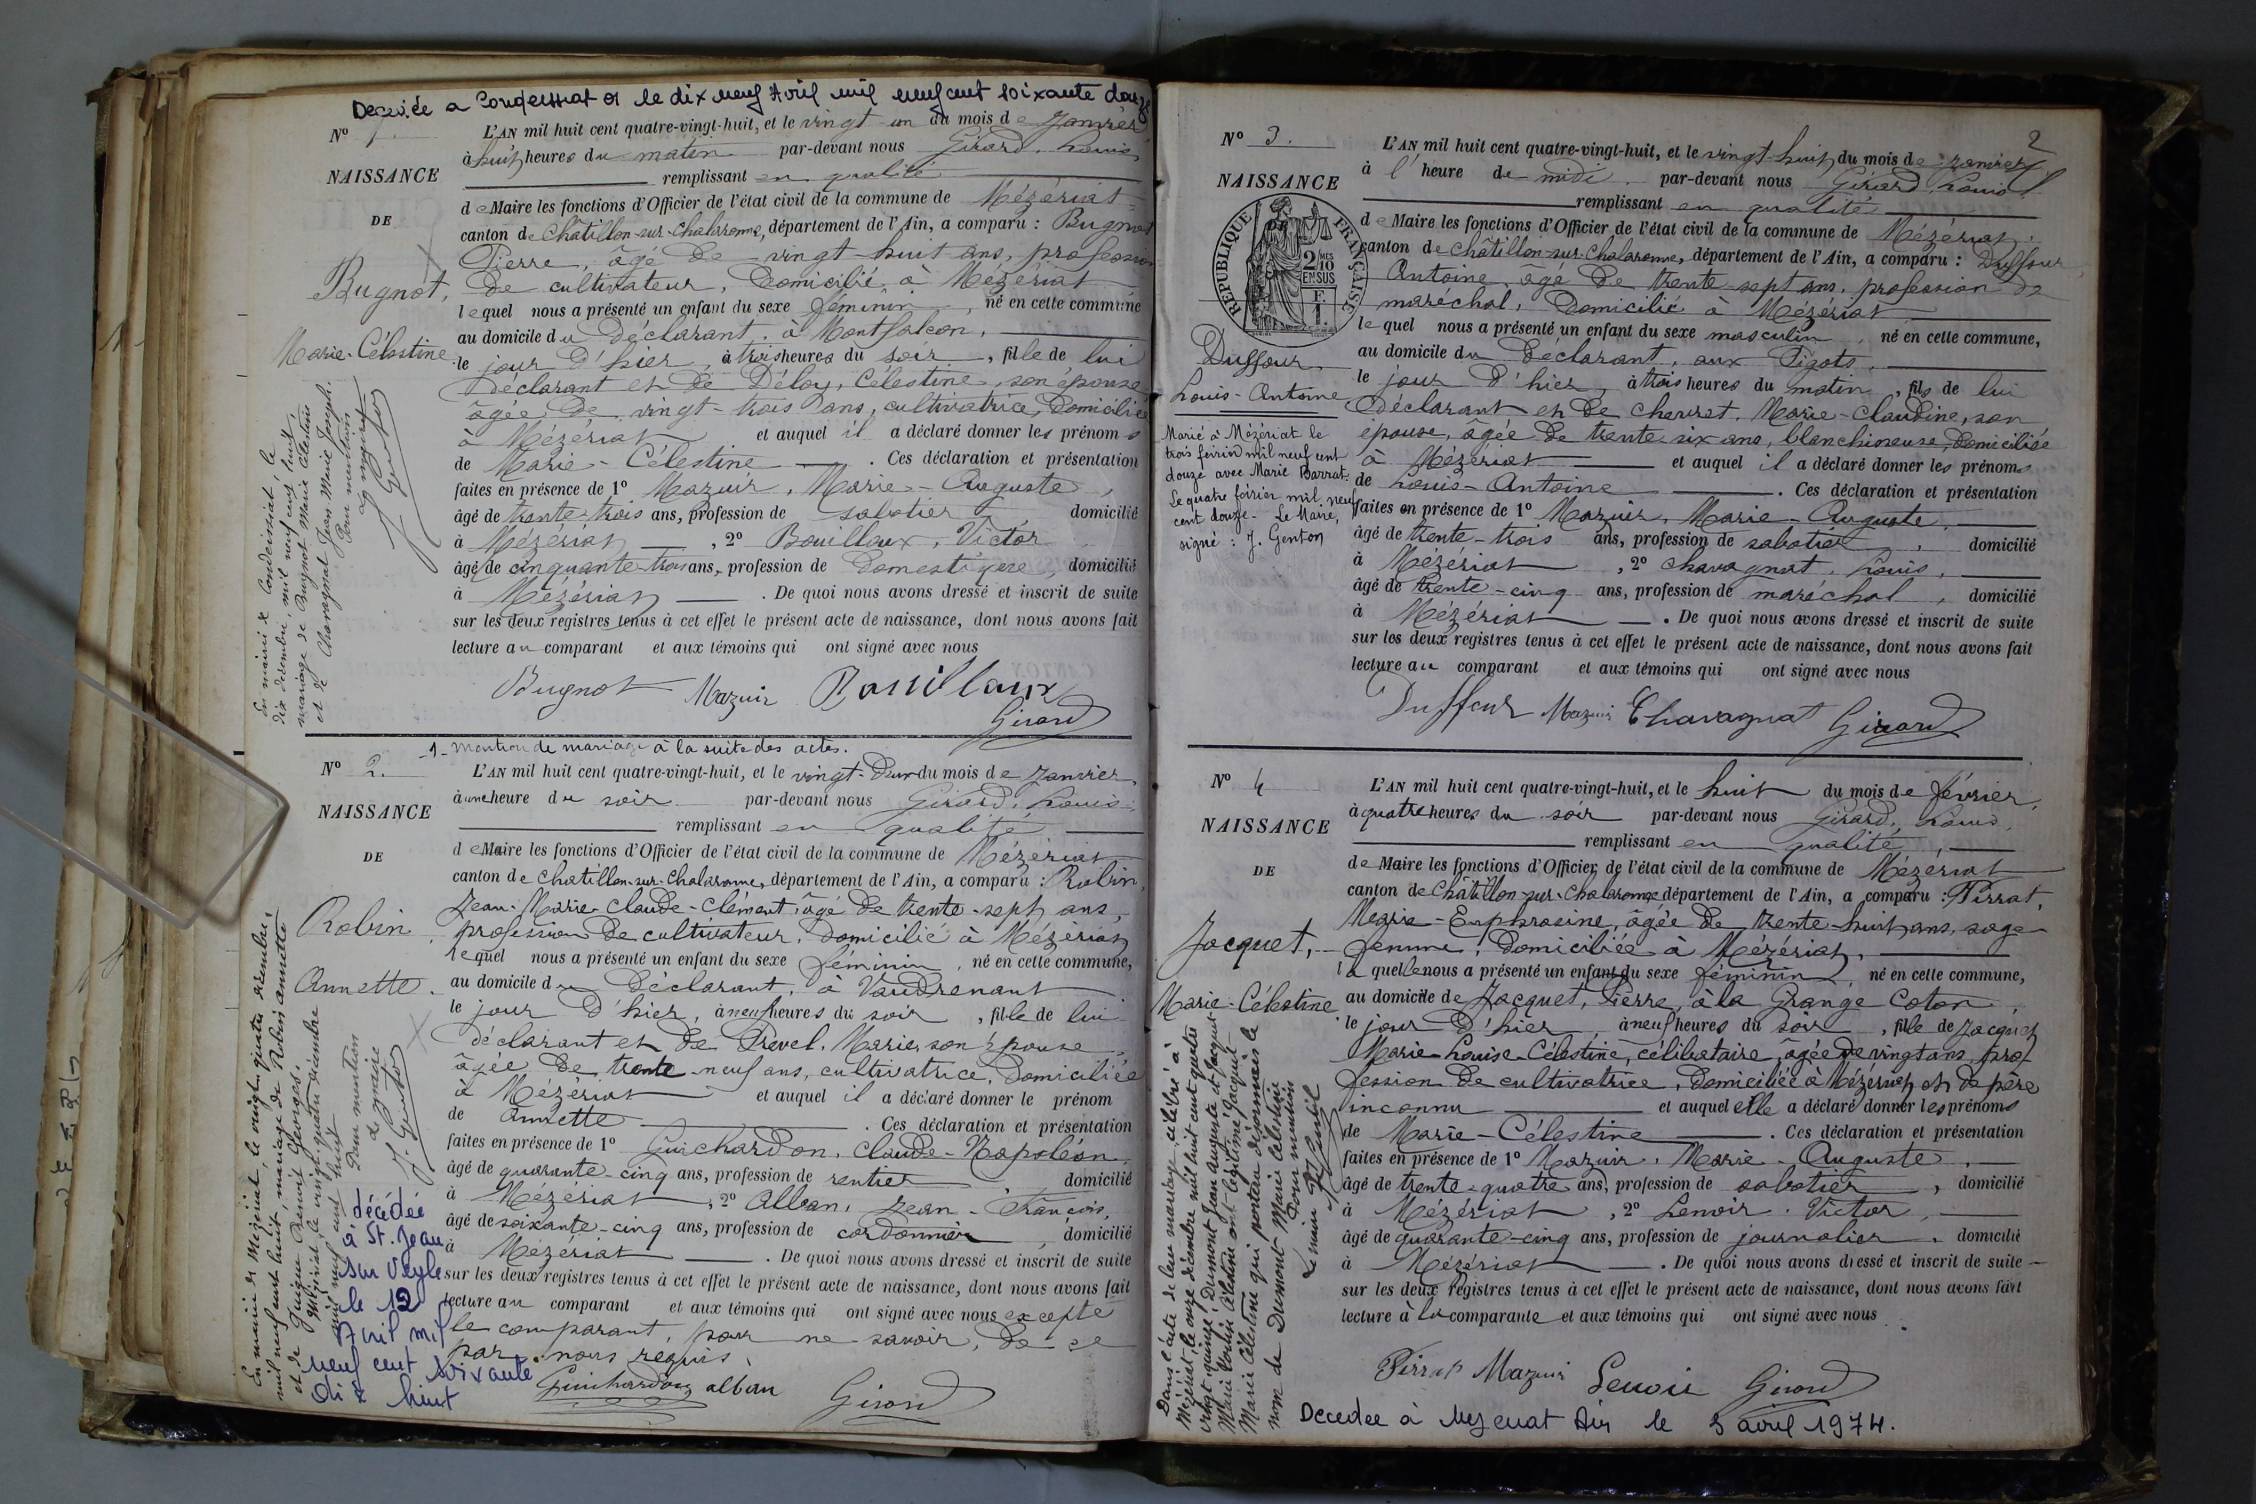 Décédée a Condeissiat 01 le dix neuf Avril mil neuf cent soixante douze
N° 1
NAISSANCE
DE
Bugnot,
Marie-Célestine
L'AN mil huit cent quatre-vingt-huit, et le vingt un du mois de Janvier
à huit heures du matin par-devant nous Girard, Louis,
remplissant en qualité
de Maire les fonctions d'Officier de l'état civil de la commune de Mézériat
canton de Châtillon-sur-Chalaronne, département de l'Ain, a comparu : Bugnot
Pierre, âgé de vingt-huit ans, profession
de cultivateur, domicilié à Mézériat
lequel nous a présenté un enfant du sexe féminin, né en cette commune
au domicile du déclarant, à Montfalcon,
le jour d'hier, à trois heures du soir, fille de lui
déclarant et de Déloy, Célestine, son épouse
âgée de vingt-trois ans, cultivatrice, domiciliée
à Mézériat et auquel il a déclaré donner les prénoms
de Marie-Célestine. Ces déclaration et présentation
faites en présence de 1° Mazuir, Marie-Auguste,
âgé de trente-trois ans, profession de sabotier domicilié
à Mézériat, 2° Bouilloux, Victor
âgé de cinquante-trois ans, profession de domestique, domicilié
à Mézériat. De quoi nous avons dressé et inscrit de suite
sur les deux registres tenus à cet effet le présent acte de naissance, dont nous avons fait
lecture au comparant et aux témoins qui ont signé avec nous
Bugnot Mazuir Bouilloux
Girard
En mairie de Condeissiat, le
dix décembre mil neuf cent huit,
mariage de Bugnot Marie Célestine
et de Chavagnat Jean Marie Joseph.
Pour mention
Le maire
J. Genton
1- Mention de mariage à la suite des actes.
N° 2.
NAISSANCE
DE
Robin
Annette.
L'AN mil huit cent quatre-vingt-huit, et le vingt-deux du mois de Janvier,
à une heure du soir par-devant nous Girard, Louis,
remplissant en qualité
de Maire les fonctions d'Officier de l'état civil de la commune de Mézériat
canton de Châtillon-sur-Chalaronne, département de l'Ain, a comparu : Robin,
Jean-Marie-Claude-Clément, âgé de trente-sept ans,
profession de cultivateur, domicilié à Mézériat
lequel nous a présenté un enfant du sexe féminin, né en cette commune,
au domicile du déclarant, à Vaudrenant
le jour d'hier, à neuf heures du soir, fille de lui
déclarant et de Prevel, Marie, son épouse
âgée de trente-neuf ans, cultivatrice, domiciliée
à Mézériat et auquel il a déclaré donner le prénom
de Annette. Ces déclaration et présentation
faites en présence de 1° Guichardon, Claude-Napoléon,
âgé de quarante-cinq ans, profession de rentier, domicilié
à Mézériat, 2° Alban, Jean-François,
âgé de soixante-cinq ans, profession de cordonnier, domicilié
à Mézériat. De quoi nous avons dressé et inscrit de suite
sur les deux registres tenus à cet effet le présent acte de naissance, dont nous avons fait
lecture au comparant et aux témoins qui ont signé avec nous excepté
le comparant, pour ne savoir, de ce
par nous requis
Guichardon alban Girard
En mairie de Mézériat, le vingt quatre décembre
mil neuf cent huit, mariage de Robin Annette
et de Benoit Georges.
Mézériat, le vingt-quatre décembre
mil neuf cent huit
Pour mention
Le maire
J. Genton
décédée
à St. Jean
sur Veyle
le 12
Avril mil
neuf cent soixante
dix huit
2
N° 3.
NAISSANCE
RÉPUBLIQUE FRANÇAISE
2/10 MES
EN SUS
F.
1.
Duffour,
Louis-Antoine
L'AN mil huit cent quatre-vingt-huit, et le vingt-huit du mois de Janvier
à l'heure de midi par-devant nous Girard Louis
remplissant en qualité
de Maire les fonctions d'Officier de l'état civil de la commune de Mézériat,
canton de Châtillon-sur-Chalaronne, département de l'Ain, a comparu : Duffour,
Antoine, âgé de trente-sept ans, profession de
maréchal, domicilié à Mézériat
lequel nous a présenté un enfant du sexe masculin né en cette commune,
au domicile du déclarant, aux Pigots,
le jour d'hier, à trois heures du matin, fils de lui
déclarant et de Chevret, Marie-Claudine, son
épouse, âgée de trente-six ans, blanchisseuse, domiciliée
à Mézériat et auquel il a déclaré donner les prénoms
de Louis-Antoine. Ces déclaration et présentation
faites en présence de 1° Mazuir, Marie-Auguste,
âgé de trente-trois ans, profession de sabotier, domicilié
à Mézériat, 2° Chavagnat, Louis,
âgé de trente-cinq ans, profession de maréchal, domicilié
à Mézériat. De quoi nous avons dressé et inscrit de suite
sur les deux registres tenus à cet effet le présent acte de naissance, dont nous avons fait
lecture au comparant et aux témoins qui ont signé avec nous
Duffour Mazuir Chavagnat Girard
Marié à Mézériat le
trois février mil neuf cent
douze avec Marie Barrat.
Le quatre février mil neuf
cent douze. Le Maire,
signé : J. Genton
N° 4
NAISSANCE
DE
Jacquet,
Marie-Célestine
L'AN mil huit cent quatre-vingt-huit, et le huit du mois de février,
à quatre heures du soir par-devant nous Girard, Louis,
remplissant en qualité,
de Maire les fonctions d'Officier de l'état civil de la commune de Mézériat
canton de Châtillon-sur-Chalaronne département de l'Ain, a comparu : Pirrat,
Marie-Euphrosine, âgée de trente-huit ans, sage-
femme, domiciliée à Mézériat,
laquelle nous a présenté un enfant du sexe féminin, né en cette commune,
au domicile de Jacquet, Pierre, à la Grange Coton,
le jour d'hier, à neuf heures du soir, fille de Jacquet
Marie-Louise-Célestine, célibataire, âgée de vingt ans, pro-
fession de cultivatrice, domiciliée à Mézériat et de père
inconnu et auquel elle a déclaré donner les prénoms
de Marie-Célestine. Ces déclaration et présentation
faites en présence de 1° Mazuir, Marie-Auguste,
âgé de trente-quatre ans, profession de sabotier, domicilié
à Mézériat, 2° Lenoir, Victor,
âgé de quarante-cinq ans, profession de journalier, domicilié
à Mézériat. De quoi nous avons dressé et inscrit de suite
sur les deux registres tenus à cet effet le présent acte de naissance, dont nous avons fait
lecture à la comparante et aux témoins qui ont signé avec nous.
Pirrat Mazuir Lenoir Girard
Dans l'acte de leur mariage célébré à
Mézériat, le onze décembre mil huit cent quatre
vingt quinze, Dumont Jean Auguste et Jacquet
Marie Louise Célestine ont légitimé Jacquet
Marie Célestine qui portera désormais le
nom de Dumont Marie Célestine
Pour mention
Le maire
Décédée à Mézériat Ain le 5 avril 1974.